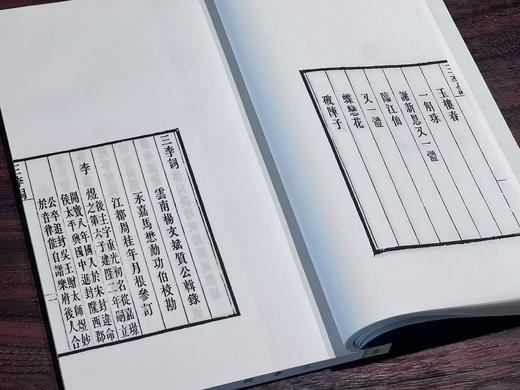 玉樓春
一斛珠
謝新恩又一體
臨江仙
又一體
蝶戀花
破陣子
三李詞
雲南楊文斌質公輯錄
永嘉馬懋勳功伯校勘
江都周桂年月根參訂
李煜
後主字重光初名從嘉璟
之第六子於建隆二年嗣立
開寶八年國入於宋封違命
侯太平興國中進封隴西郡
公卒追封吳王贈太師煜妙
於音律能自譜樂府後人合
三李詞
一